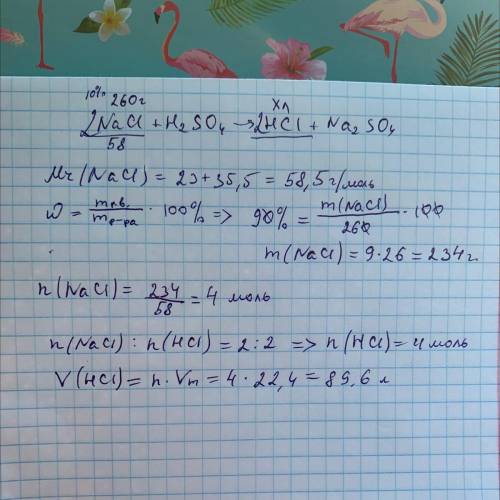 10% 260г xл
2NaCl + H₂SO₄ → 2HCl + Na₂SO₄
58
Mr(NaCl) = 23 + 35,5 = 58,5 г/моль
ω = mр.в. / mр-ра · 100% => 90% = m(NaCl) / 260 · 100
m(NaCl) = 9 · 26 = 234 г.
n(NaCl) = 234 / 58 = 4 моль
n(NaCl) : n(HCl) = 2 : 2 => n(HCl) = 4 моль
V(HCl) = n · Vm = 4 · 22,4 = 89,6 л